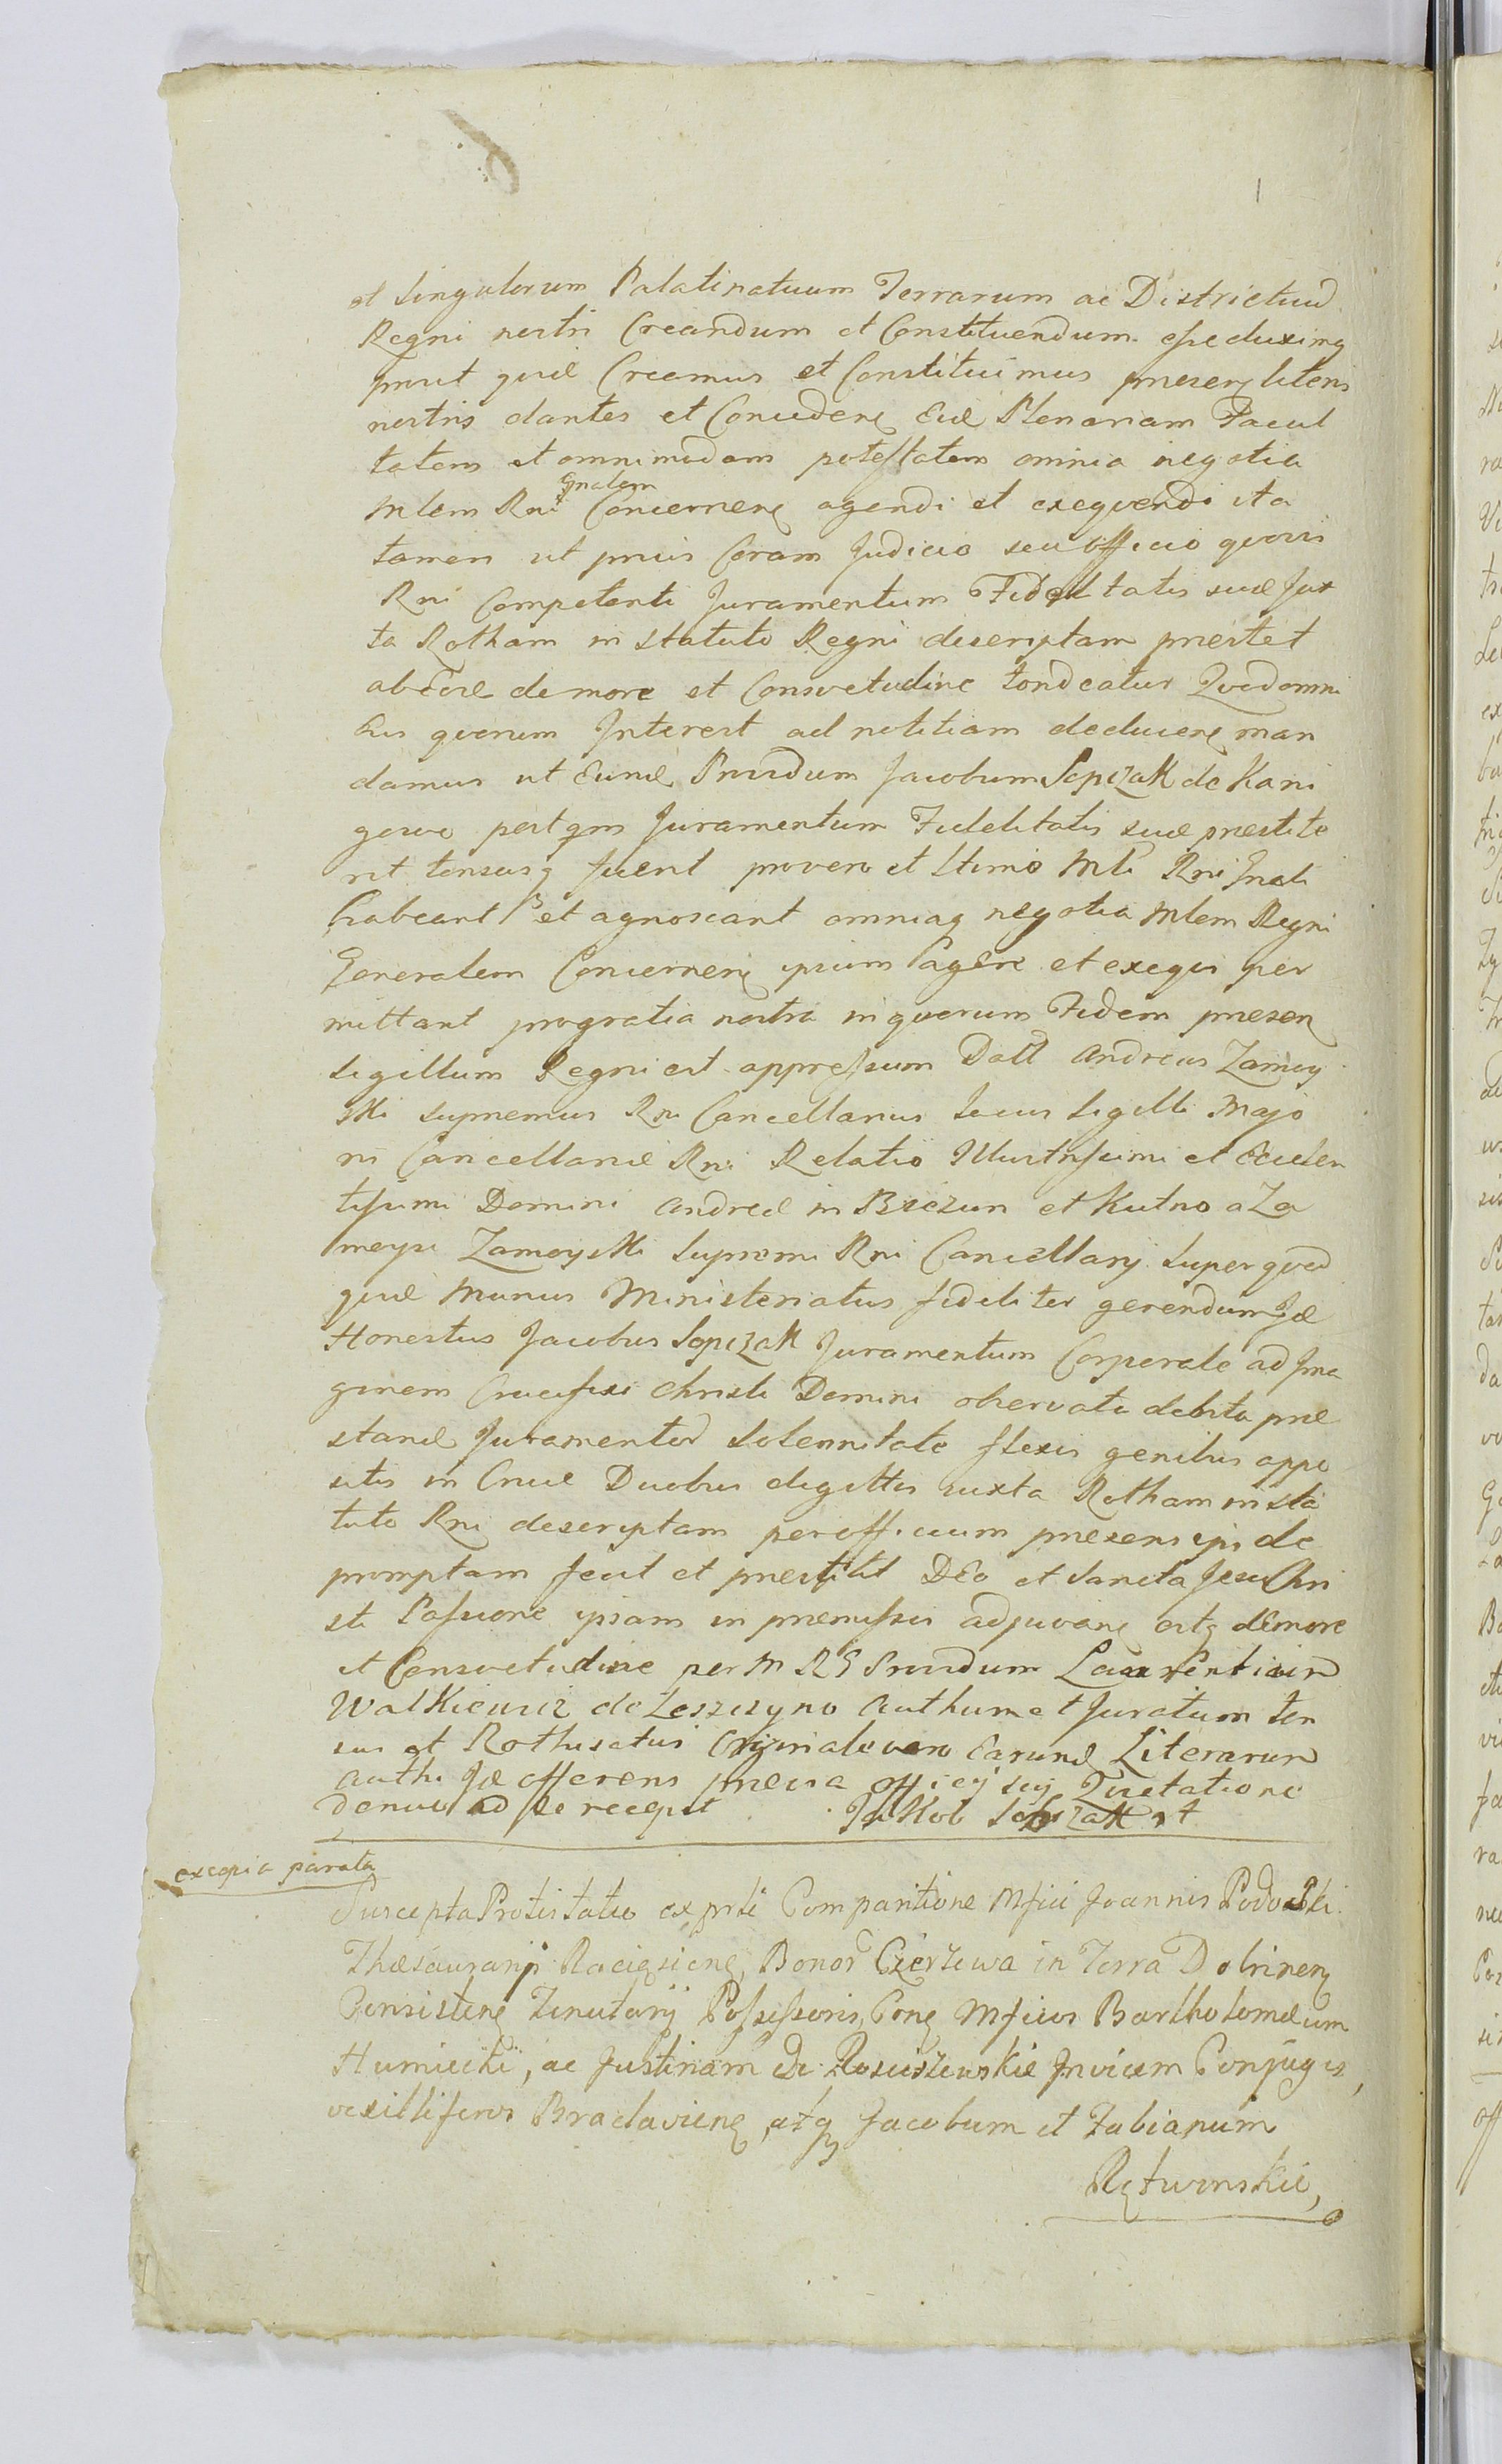 et singulorum Palatinatuum Terrarum ac Districtuū
Regni nostri Creandum et Constituendum esse duximq
prout quidē Creamus et Constituimus presenq literis
nostris dantes et Concedenq Eidē Plenariam Facul
tatem et omnimodam potestatem omnia negotia
Gnalem
Mlem Rni Concernenq agendi et exequendi ita
tamen ut prius Coram Judicio seu officio quovis
Rni Competenti Juramentum Fidelitatis suæ Jux
ta Rotham in statuto Regni descriptam prestet
ab Eodē de more et Consvetudine tondeatur Quod omni
bus quorum Interest ad notitiam deducenq man
damus ut Eundē Providum Jacobum Sopczak de Kani
gowo postqm Juramentum Fidelitatis suæ prestite
rit tonsusq fuerit pro vero et ltimo Mli Rni Gnali
habeant et agnoscant omniaq negotia Mlem Regni
Generalem Concernenq ipsum agere et exequi per
mittant pro gratia nostra in quorum Fidem presenq
sigillum Regni est appressum Datt Andreas Zamoy
ski supremus Rni Cancellarius Locus sigilli Majo
ris Cancellariæ Rni Relatio Illustrissimi et Excelen
tissimi Domini Andreæ in Biezun et Kutno a Za
moyscie Zamoyski Supremi Rni Cancellarij Super quod
quidē Munus Ministeriatus fideliter gerendum Jd
Honestus Jacobus Sopczak Juramentum Corporale ad Jma
ginem Crucifixi Christi Domini observata debita præ
standē Juramentoŕ Solennitate flexis genibus appo
sitis in Cruce Duobus digittis iuxta Rotham in sta
tuto Rni descriptam per officium presens ipsi de
promptam fecit et prestitit DEo et Sancta Jesu Chri
sti Passione ipsam in premissis adjuvanq estq de more
et Consvetudine per M R G Providum Laurentium
Walkiewicz de Leszczyno Authum et Juratum ton
sus et Rothisatus Originale vero Earundē Literarum
Authi Jd offerens previa officij sui Quietatione
denuo ad se recepit Jakob Sopczak
ex copia parata
Suscepta Protestatio ex prte Comparitione Mfici Joannis Podoski
Thæsaurarij Raciąsienq, Bonoŕ Czerzewa in Terra Dobrinenq
Consistenq Tenutarij Possessoris, Conq Mficos Bartholomæum
Humiecki, ac Justinam De Rosciszewskie Jnvicem Conjuges,
vexilliferos Braclavienq, atq Jacobum et Fabianum
Rętwinskie,